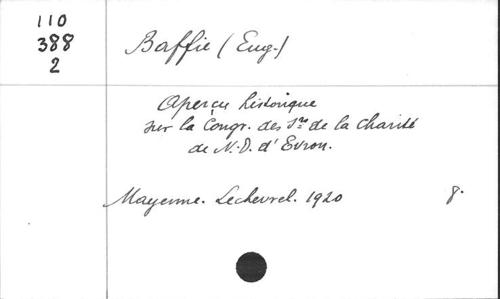 110
388
2
Baffie (Eug.)
Aperçu historique
sur la Congr. des Srs de la Charité
de N.-D. d'Evron.
Mayenne. Lechevrel. 1920 8.